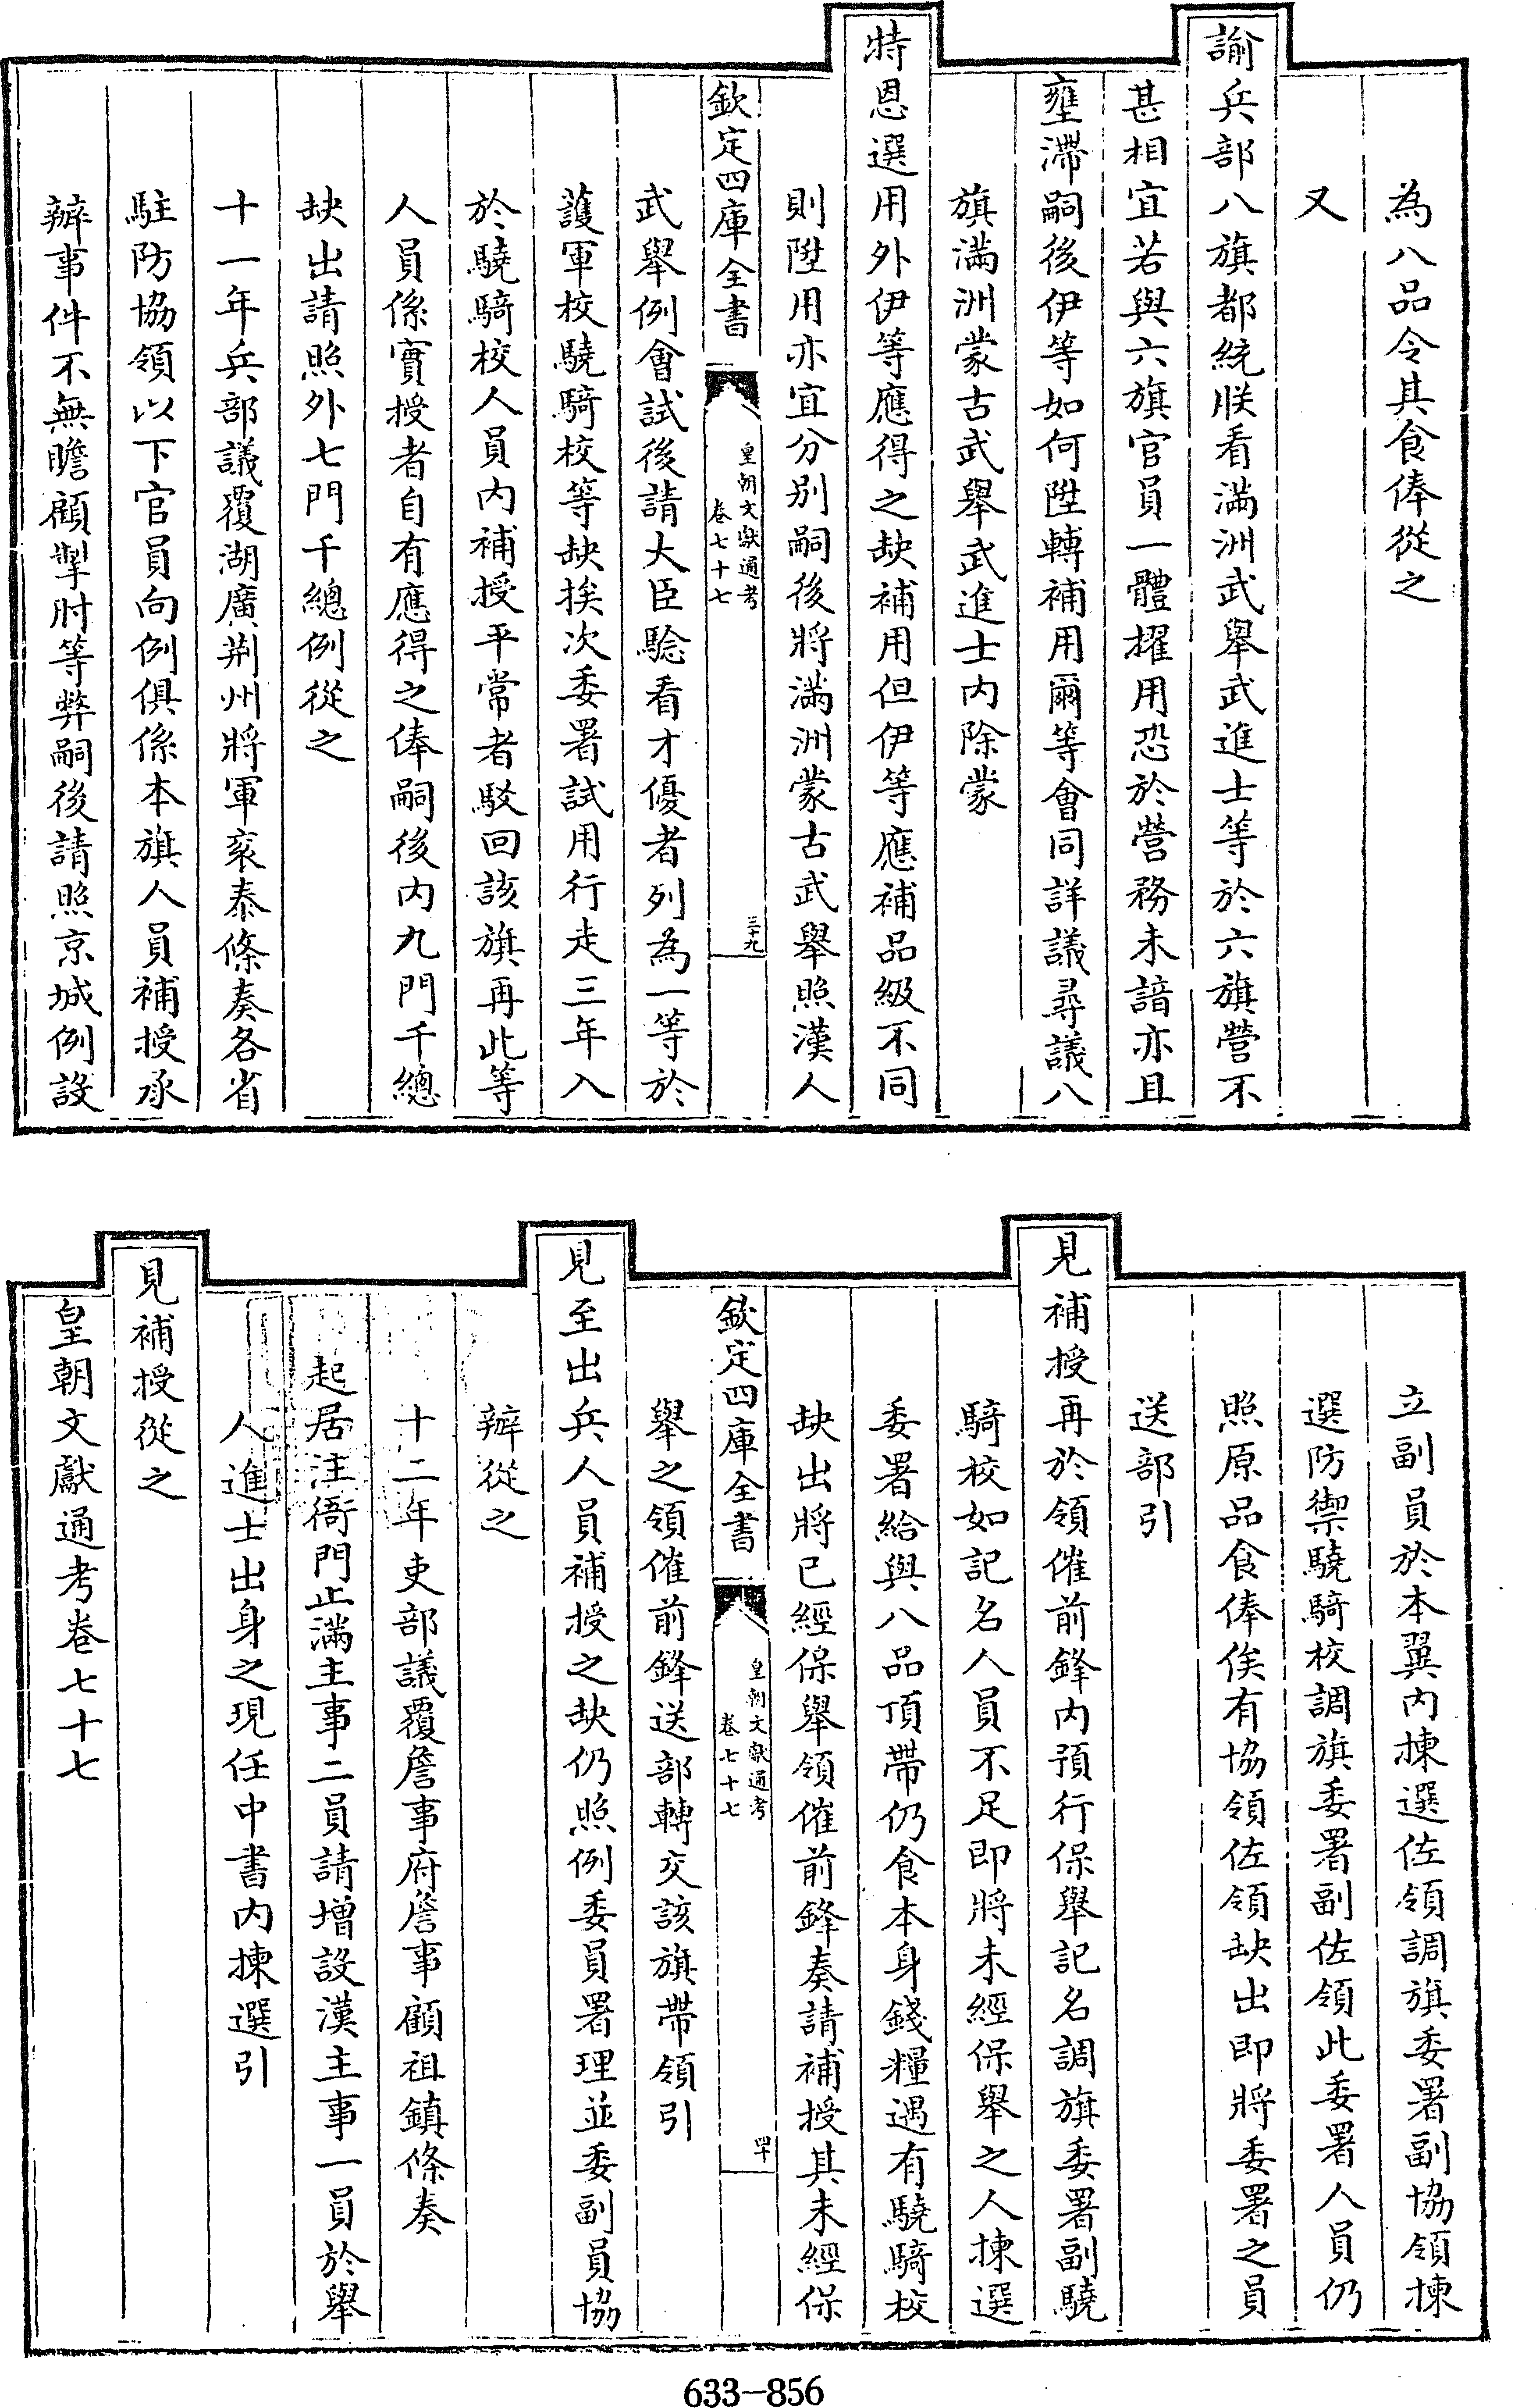 為八品令其食俸從之
又
諭兵部八旗都統朕看滿洲武舉武進士等於六旗營不
甚相宜若與六旗官員一體擢用恐於營務未諳亦且
壅滯嗣後伊等如何陞轉補用爾等會同詳議尋議八
旗滿洲蒙古武舉武進士内除蒙
特恩選用外伊等應得之缺補用但伊等應補品級不同
則陞用亦宜分别嗣後將滿洲蒙古武舉照漢人
欽定四庫全書
皇朝文獻通考
卷七十七
三十九
武舉例會試後請大臣騐看才優者列為一等於
護軍校驍騎校等缺挨次委署試用行走三年入
於驍騎校人員内補授平常者駁回該旗再此等
人員係實授者自有應得之俸嗣後内九門千總
缺出請照外七門千總例從之
十一年兵部議覆湖廣荆州將軍衮泰條奏各省
駐防協領以下官員向例俱係本旗人員補授承
辦事件不無瞻顧掣肘等弊嗣後請照京城例設
立副員於本翼内揀選佐領調旗委署副協領揀
選防禦驍騎校調旗委署副佐領此委署人員仍
照原品食俸俟有協領佐領缺出即將委署之員
送部引
見補授再於領催前鋒内預行保舉記名調旗委署副驍
騎校如記名人員不足即將未經保舉之人揀選
委署給與八品頂帶仍食本身錢糧遇有驍騎校
缺出將已經保舉領催前鋒奏請補授其未經保
欽定四庫全書
皇朝文獻通考
卷七十七
四十
舉之領催前鋒送部轉交該旗帶領引
見至出兵人員補授之缺仍照例委員署理並委副員協
辦從之
十二年吏部議覆詹事府詹事顧祖鎮條奏
起居注衙門止滿主事二員請增設漢主事一員於舉
人進士出身之現任中書内揀選引
見補授從之
皇朝文獻通考卷七十七
633-856